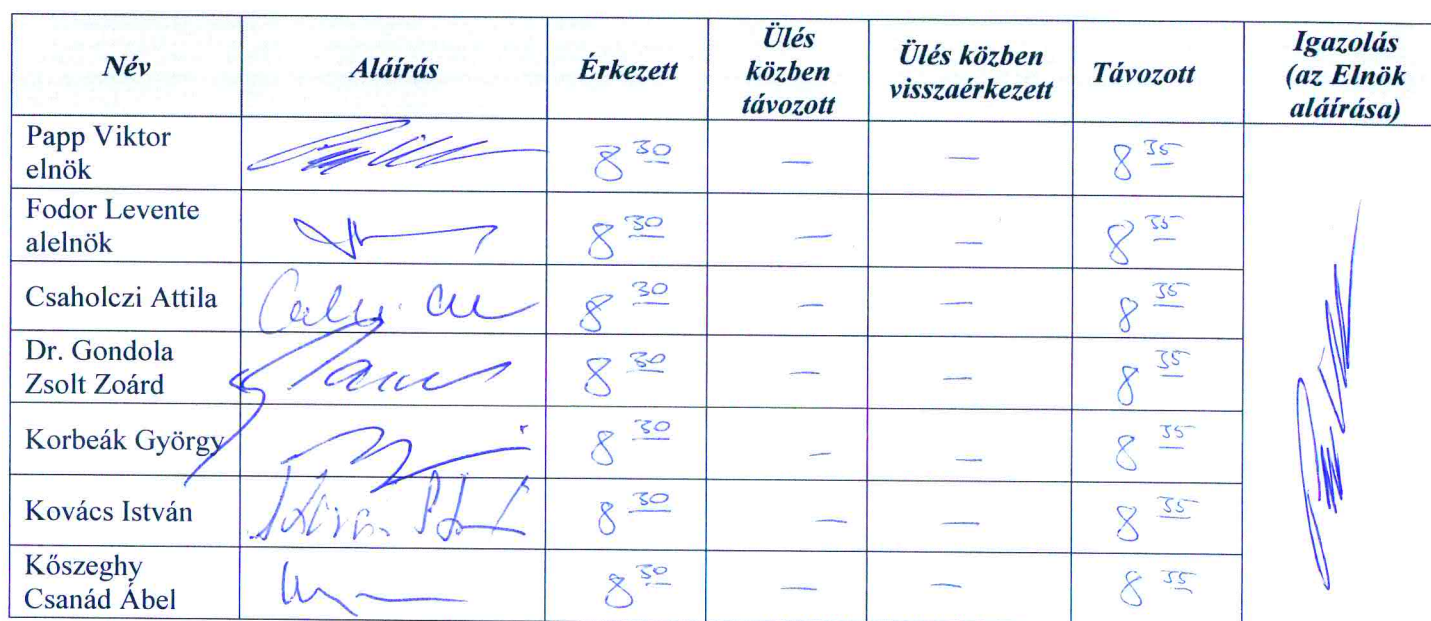 Név Aláírás Érkezett Ülés közben távozott Ülés közben visszaérkezett Távozott Igazolás (az Elnök aláírása)
Papp Viktor
elnök 8 30 — — 8 35
Fodor Levente
alelnök 8 30 — — 8 35
Csaholczi Attila 8 30 — — 8 35
Dr. Gondola
Zsolt Zoárd 8 30 — — 8 35
Korbeák György 8 30 — — 8 35
Kovács István 8 30 — — 8 35
Kőszeghy
Csanád Ábel 8 30 — — 8 35